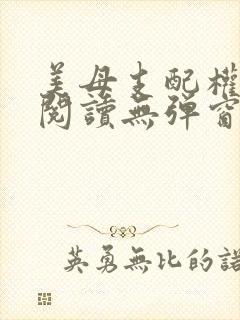 美母支配權
閱讀無彈窗
英勇無比的諾